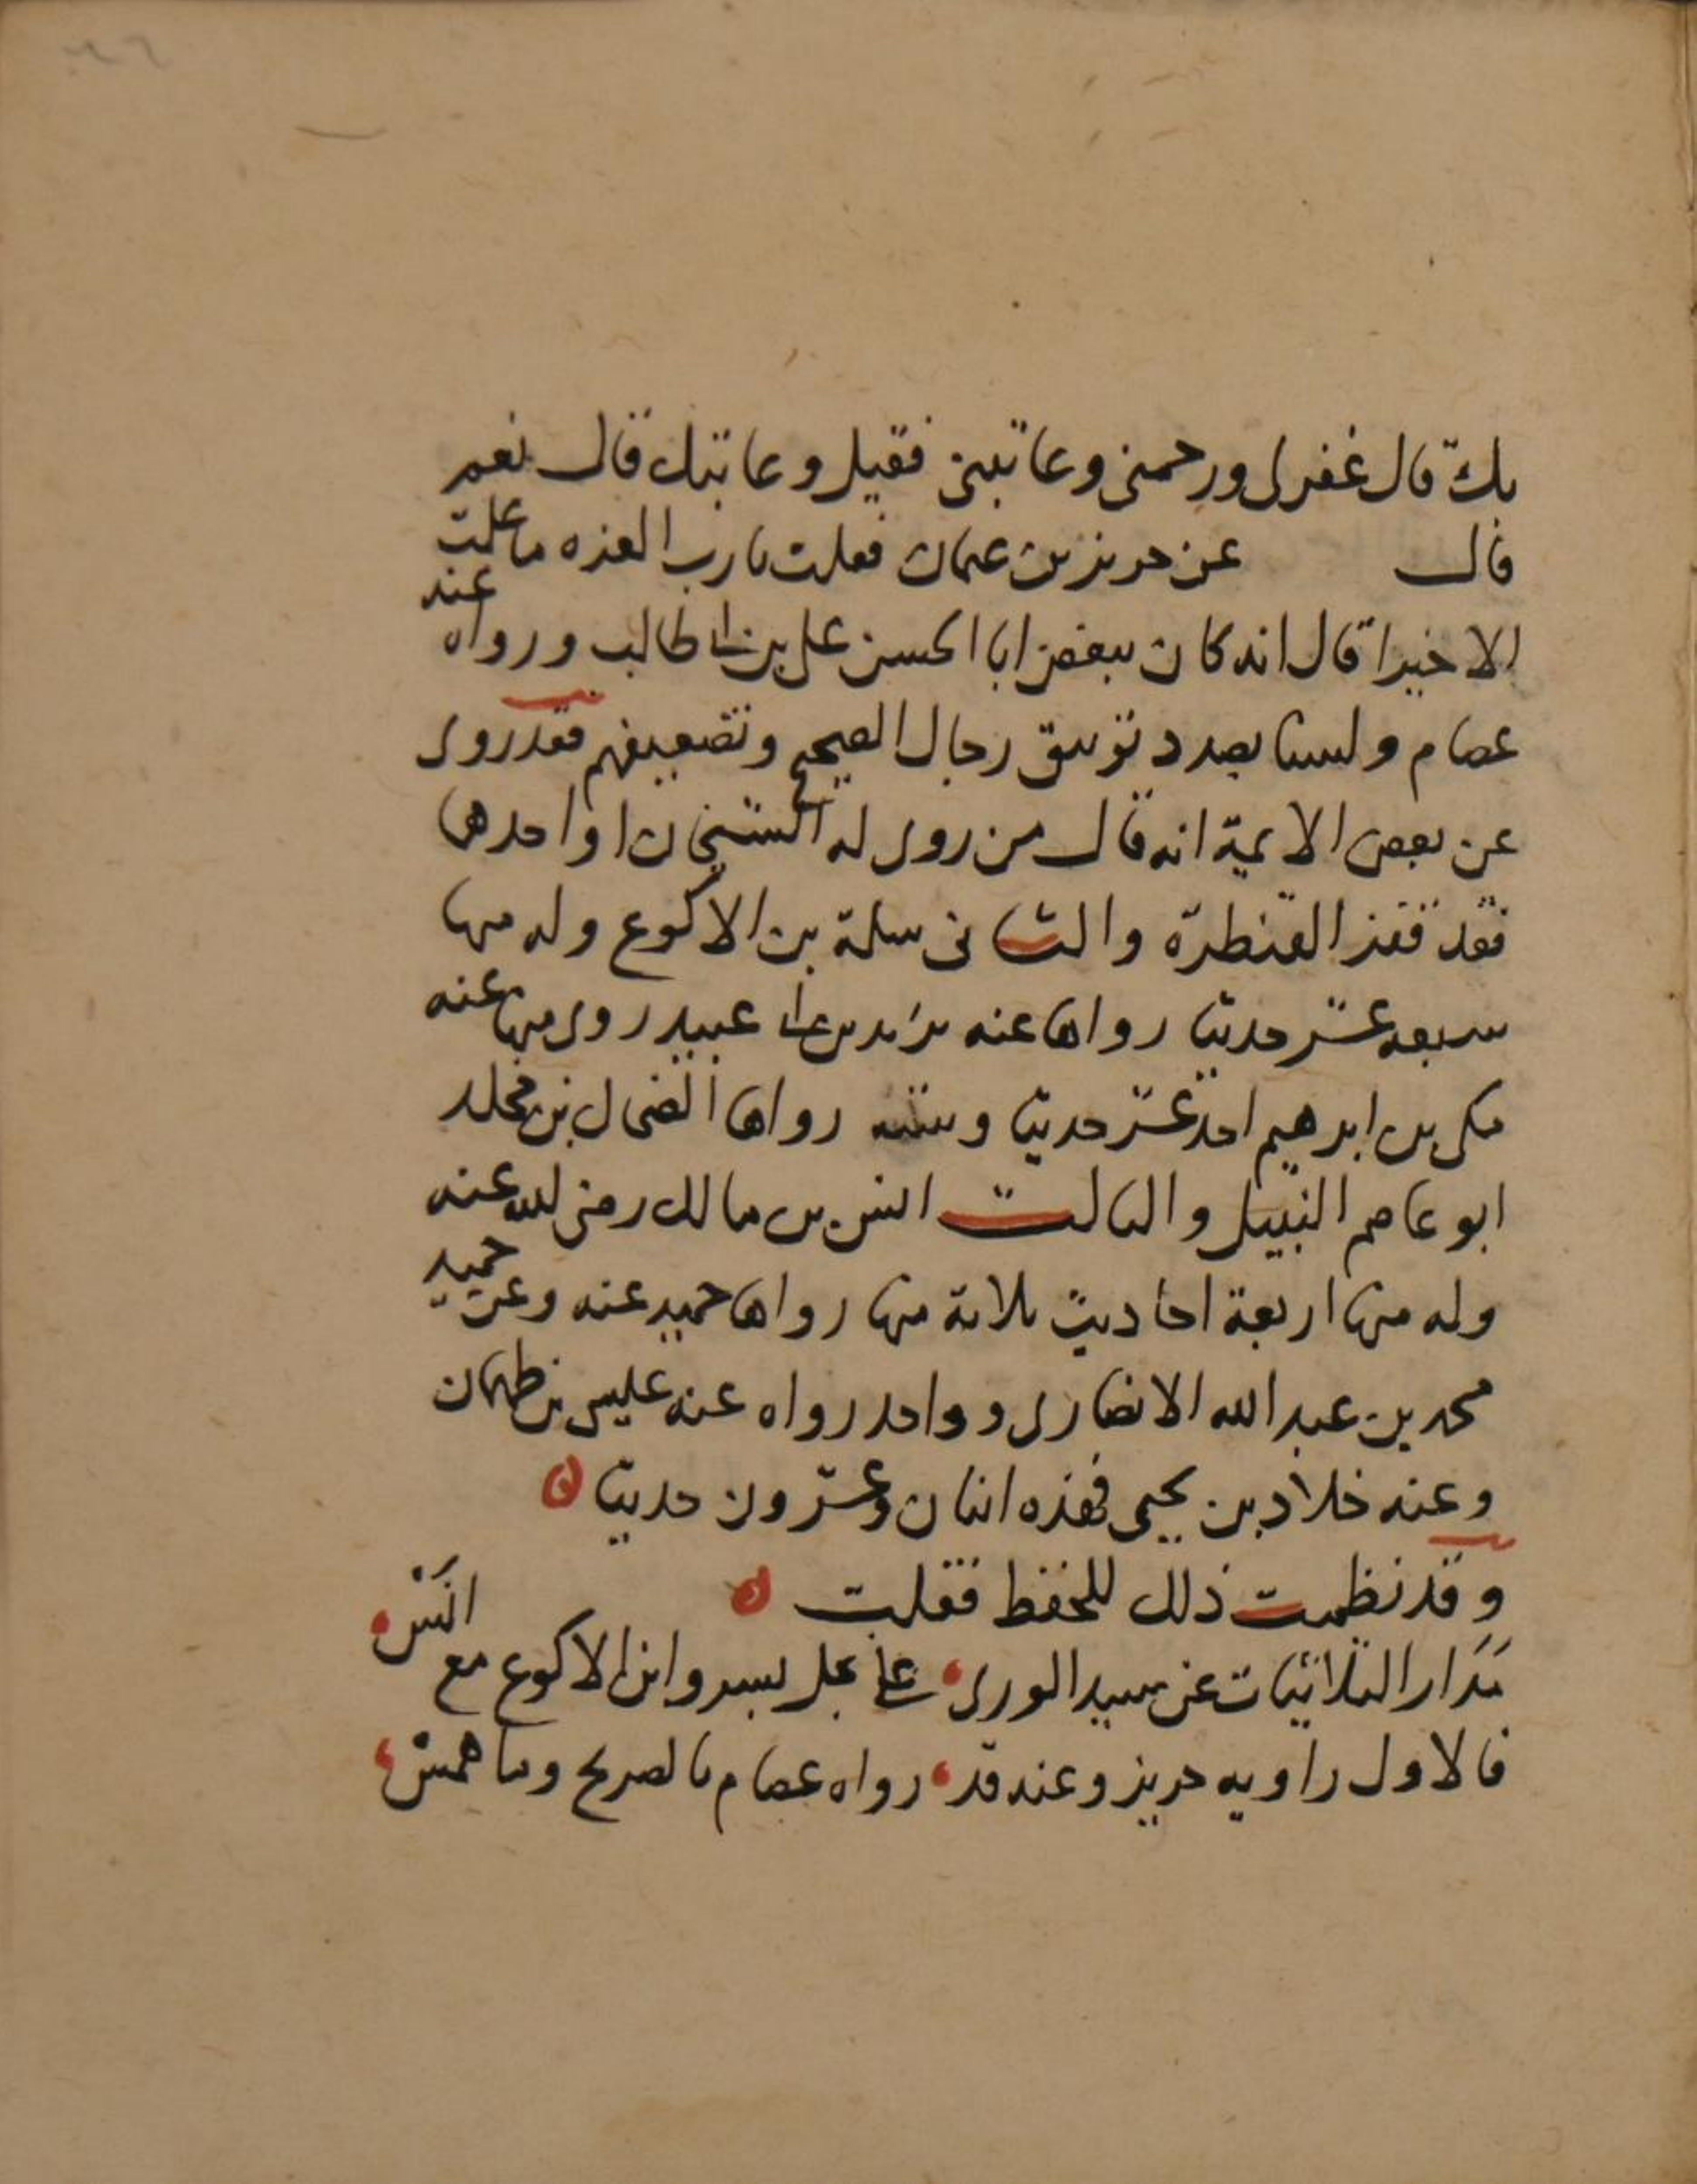 بك قال غفر لى ورحمنى وعاتبنى فقيل وعاتبك قال نعم
قال عن حريز بن عثمان فقلت يا رب العزه ما علمت
الا خيرا قال انه كان يبغض ابا الحسن على بن ابى طالب ورواه عنه
عصام ولسنا بصدد توثيق رجال الصحيح وتضعيفهم فقد روى
عن بعض الايمة انه قال من روى له الشيخان او احدهما
فقد قفز القنطرة والثانى سلمة بن الاكوع وله منها
سبعه عشر حديثا رواها عنه يزيد بن ابى عبيد روى منها عنه
مكى بن ابرهيم احد عشر حديثا وستة رواها الضحاك بن مخلد
ابو عاصم النبيل والثالث انس بن مالك رضى الله عنه
وله منها اربعة احاديث ثلاثة منها رواها حميد عنه وعن حميد
محمد بن عبد الله الانصارى وواحد رواه عنه عيسى بن طهمان
وعنه خلاد بن يحيى فهذه اثنان وعشرون حديثا
وقد نظمت ذلك للحفظ فقلت
مدار الثلاثيات عن سيد الورى على نجل بسر وابن الاكوع مع انس
فالاول راويه حريز وعنه قد رواه عصام بالصريح وما همس